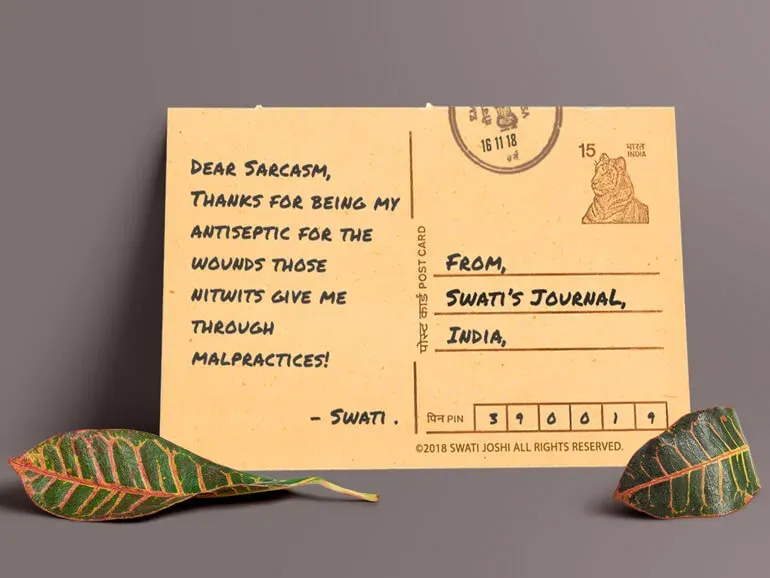 DEAR SARCASM,
THANKS FOR BEING MY
ANTISEPTIC FOR THE
WOUNDS THOSE
NITWITS GIVE ME
THROUGH
MALPRACTICES!
- SWATI .
पोस्ट कार्ड POST CARD
16 11 18
15 भारत
INDIA
FROM,
SWATI'S JOURNAL,
INDIA,
पिन PIN 3 9 0 0 1 9
©2018 SWATI JOSHI ALL RIGHTS RESERVED.